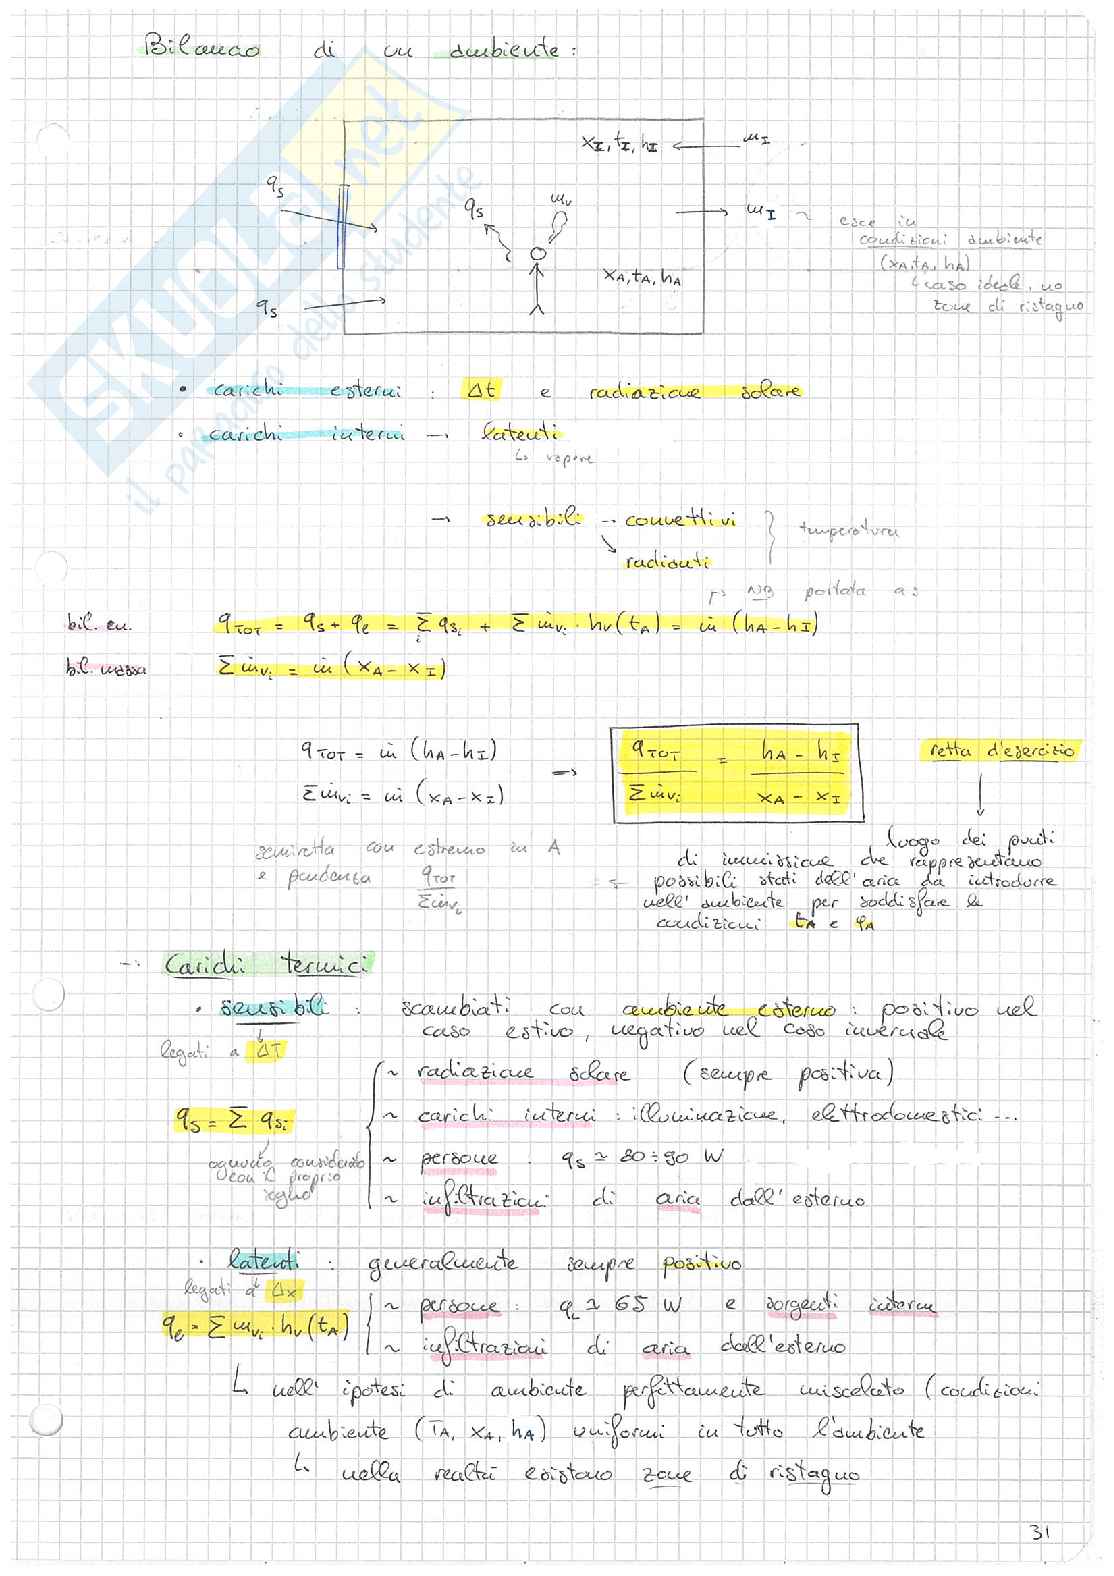 Bilancio di un ambiente:
x_I, t_I, h_I ← m_I
q_s
q_s
m_v
→ m_I ~ esce in
condizioni ambiente
(x_A, t_A, h_A)
↳ caso ideale, no
zone di ristagno
x_A, t_A, h_A
q_s
• carichi esterni : Δt e radiazione solare
• carichi interni → latenti
↳ vapore
→ sensibili → convettivi
→ radianti
} temperatura
NB portata a:
bil. en. q_TOT = q_s + q_e = Σ_i q_si + Σ ṁ_vi · h_v(t_A) = ṁ (h_A - h_I)
bil. massa Σ ṁ_vi = ṁ (x_A - x_I)
q_TOT = ṁ (h_A - h_I)
Σ ṁ_vi = ṁ (x_A - x_I)
→ q_TOT / Σ ṁ_vi = (h_A - h_I) / (x_A - x_I)
retta d'esercizio
semiretta con estremo in A
e pendenza q_TOT / Σ ṁ_vi
luogo dei punti
di immissione che rappresentano
possibili stati dell'aria da introdurre
nell'ambiente per soddisfare le
condizioni t_A e φ_A
→ Carichi termici
• sensibili : scambiati con ambiente esterno : positivo nel
caso estivo, negativo nel caso invernale
legati a ΔT
~ radiazione solare (sempre positiva)
q_s = Σ q_si
~ carichi interni : illuminazione, elettrodomestici ...
ognuno considerato
con il proprio
segno
~ persone : q_s ≃ 80 ÷ 90 W
~ infiltrazioni di aria dall'esterno
• latenti : generalmente sempre positivo
legati a Δx
q_e = Σ m_vi · h_v(t_A)
~ persone : q_L ≃ 65 W e sorgenti interne
~ infiltrazioni di aria dall'esterno
↳ nell' ipotesi di ambiente perfettamente miscelato (condizioni
ambiente (T_A, x_A, h_A) uniformi in tutto l'ambiente
↳ nella realtà esistono zone di ristagno
31
SKUOLA.net
il paradiso dello studente